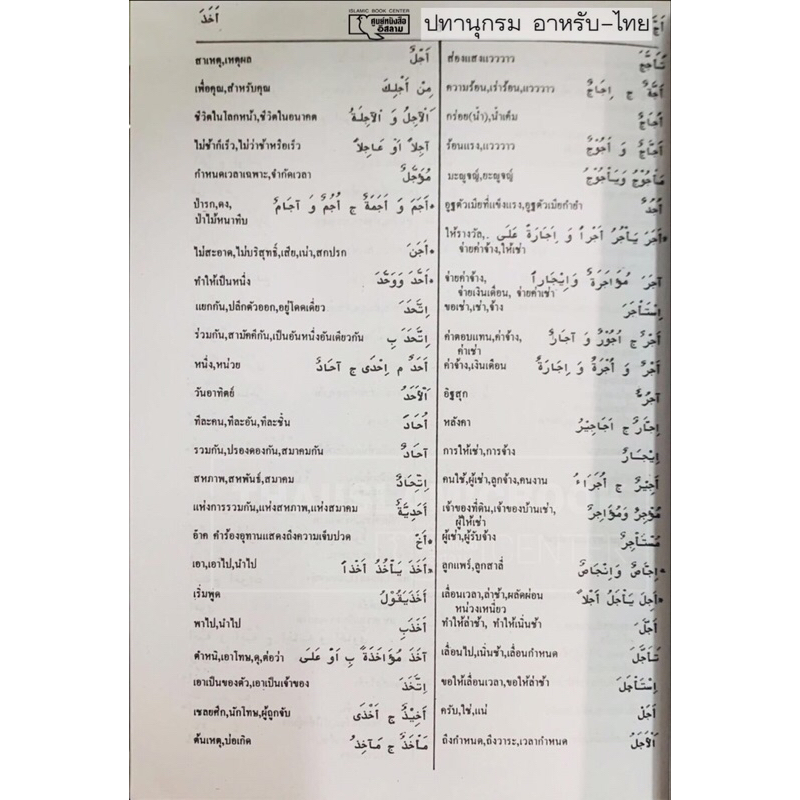 أَخَذَ
ISLAMIC BOOK CENTER
ศูนย์หนังสือ
อิสลาม
ปทานุกรม อาหรับ-ไทย
تَأَجَّجَ ส่องแสงแวววาว
أَجَّةٌ ج إِجَاجٌ ความร้อน,เร่าร้อน,แวววาว
أُجَاجٌ กร่อย(น้ำ),น้ำเค็ม
أَجَّاجٌ و أَجُوْجٌ ร้อนแรง,แวววาว
مَأْجُوْجُ وَيَأْجُوْجُ มะญูจญ์,ยะญูจญ์
أُجُدٌ อูฐตัวเมียที่แข็งแรง,อูฐตัวเมียกำยำ
*أَجَرَ يَأْجُرُ أَجْراً وَ إِجَارَةً عَلَى ให้รางวัล,
จ่ายค่าจ้าง,ให้เช่า
آجَرَ مُؤَاجَرَةً وَإِيْجَاراً จ่ายค่าจ้าง,
จ่ายเงินเดือน, จ่ายค่าเช่า
اِسْتَأْجَرَ ขอเช่า,เช่า,จ้าง
أَجْرٌ ج أُجُوْرٌ و آجَارٌ ค่าตอบแทน,ค่าจ้าง,
ค่าเช่า
أَجْرٌ وَ أُجْرَةٌ وَ إِجَارَةٌ ค่าจ้าง,เงินเดือน
آجُرٌّ อิฐสุก
إِجَّارٌ ج أَجَاجِيْرُ หลังคา
إِيْجَارٌ การให้เช่า,การจ้าง
أَجِيْرٌ ج أُجَرَاءُ คนใช้,ผู้เช่า,ลูกจ้าง,คนงาน
مُؤْجِرٌ وَمُؤَاجِرٌ เจ้าของที่ดิน,เจ้าของบ้านเช่า,
ผู้ให้เช่า
مُسْتَأْجِرٌ ผู้เช่า,ผู้รับจ้าง
*إِجَّاصٌ وَإِنْجَاصٌ ลูกแพร์,ลูกสาลี่
*أَجِلَ يَأْجَلُ أَجَلاً เลื่อนเวลา,ล่าช้า,ผลัดผ่อน
หน่วงเหนี่ยว
أَجَّلَ ทำให้ล่าช้า, ทำให้เนิ่นช้า
تَأَجَّلَ เลื่อนไป,เนิ่นช้า,เลื่อนกำหนด
اِسْتَأْجَلَ ขอให้เลื่อนเวลา,ขอให้ล่าช้า
أَجَلْ ครับ,ใช่,แน่
اَلْأَجَلُ ถึงกำหนด,ถึงวาระ,เวลากำหนด
أَجْلٌ สาเหตุ,เหตุผล
مِنْ أَجْلِكَ เพื่อคุณ,สำหรับคุณ
اَلْآجِلُ وَ الْآجِلَةُ ชีวิตในโลกหน้า,ชีวิตในอนาคต
آجِلاً أَوْ عَاجِلاً ไม่ช้าก็เร็ว,ไม่ว่าช้าหรือเร็ว
مُؤَجَّلٌ กำหนดเวลาเฉพาะ,จำกัดเวลา
*أَجَمَ وَ أَجَمَةٌ ج أُجُمٌ وَ آجَامٌ ป่ารก,ดง,
ป่าไม้หนาทึบ
*أَجَنَ ไม่สะอาด,ไม่บริสุทธิ์,เสีย,เน่า,สกปรก
*أَحَّدَ وَوَحَّدَ ทำให้เป็นหนึ่ง
اِتَّحَدَ แยกกัน,ปลีกตัวออก,อยู่โดดเดี่ยว
اِتَّحَدَ بِ ร่วมกัน,สามัคคีกัน,เป็นอันหนึ่งอันเดียวกัน
أَحَدٌ م إِحْدَى ج آحَادٌ หนึ่ง,หน่วย
اَلْأَحَدُ วันอาทิตย์
أُحَادَ ทีละคน,ทีละอัน,ทีละชิ้น
آحَادٌ รวมกัน,ปรองดองกัน,สมาคมกัน
اِتِّحَادٌ สหภาพ,สหพันธ์,สมาคม
أَحَدِيَّةٌ แห่งการรวมกัน,แห่งสหภาพ,แห่งสมาคม
*أَخْ อ๊าค คำร้องอุทานแสดงถึงความเจ็บปวด
*أَخَذَ يَأْخُذُ أَخْذاً เอา,เอาไป,นำไป
أَخَذَيَقُوْلُ เริ่มพูด
أَخَذَبِ พาไป,นำไป
آخَذَ مُؤَاخَذَةً بِ أَوْ عَلَى ตำหนิ,เอาโทษ,ดุ,ต่อว่า
اِتَّخَذَ เอาเป็นของตัว,เอาเป็นเจ้าของ
أَخِيْذٌ ج أَخْذَى เชลยศึก,นักโทษ,ผู้ถูกจับ
مَأْخَذٌ ج مَآخِذُ ต้นเหตุ,บ่อเกิด